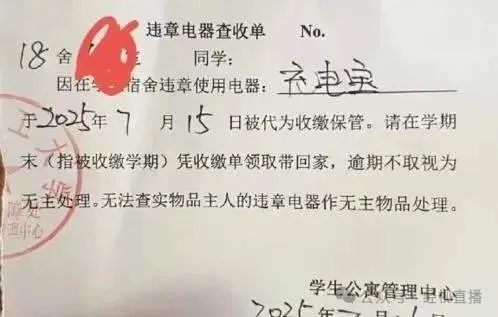 违章电器查收单 No.
18舍 同学:
因在学 宿舍违章使用电器: 充电宝
于2025年7月15日被代为收缴保管。请在学期
末(指被收缴学期)凭收缴单领取带回家,逾期不取视为
无主处理。无法查实物品主人的违章电器作无主物品处理。
大学
管理中心
学生公寓管理中心
公众号
直播
2025年7月